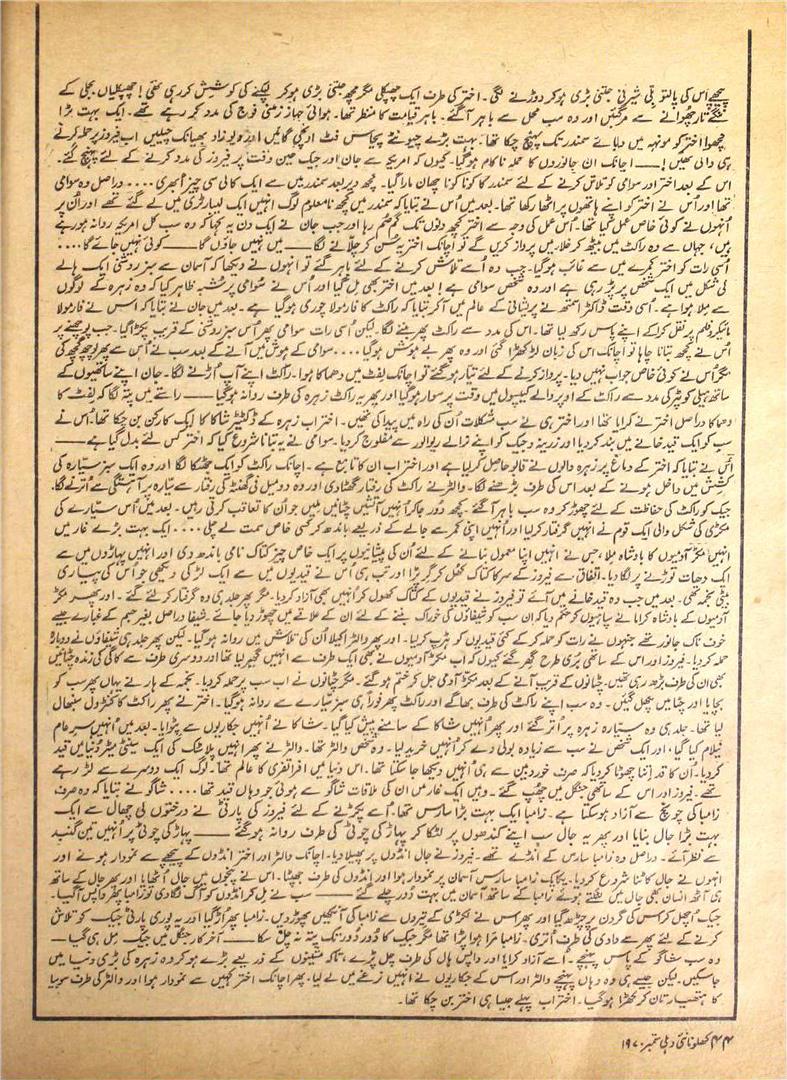 پیچھے اُس کی پالتو بلّی شیرنی جتنی بڑی ہو کر دوڑنے لگی۔ اختر کی طرف ایک چھپکلی مگر مچھ جتنی بڑی ہو کر لپکنے کی کوشش کر رہی تھی! چھپکلیاں بجلی کے
ننگے تار چھوانے سے مر گئیں اور وہ سب محل سے باہر آ گئے۔ باہر قیامت کا منظر تھا۔ ہوائی جہاز زمینی فوج کی مدد کر رہے تھے۔ ایک بہت بڑا
کچھوا اختر کو مونہہ میں دبائے سمندر تک پہنچ چکا تھا۔ بہت بڑے چیونٹے پچاس فٹ اونچی گائیں اور دیوزاد بھیانک چیلیں اب فیروز پر حملہ کرنے
ہی والی تھیں! — اچانک ان جانوروں کا حملہ ناکام ہو گیا۔ کیوں کہ امریکہ سے جان اور جیک عین وقت پر فیروز کی مدد کرنے کے لئے پہنچ گئے۔
اس کے بعد اختر اور سوامی کو تلاش کرنے کے لئے سمندر کا کونا کونا چھان مارا گیا۔ کچھ دیر بعد سمندر میں سے ایک کالی سی چیز اُبھری .... دراصل وہ سوامی
تھا اور اُس نے اختر کو اپنے ہاتھوں پر اٹھا رکھا تھا۔ بعد میں اُس نے بتایا کہ سمندر میں کچھ نامعلوم لوگ انہیں ایک لیبارٹری میں لے گئے تھے اور اُن پر
اُنہوں نے کوئی خاص عمل کیا تھا۔ اُس عمل کی وجہ سے اختر کچھ دنوں تک گم صُم رہا اور جب جان نے ایک دن یہ کہا کہ وہ سب کل امریکہ روانہ ہو رہے
ہیں، جہاں سے وہ راکٹ میں بیٹھ کر خلا میں پرواز کریں گے تو اچانک اختر یہ سُن کر چلّانے لگا — میں نہیں جاؤں گا — کوئی نہیں جائے گا ....
اُسی رات کو اختر کمرے میں سے غائب ہو گیا۔ جب وہ اُسے تلاش کرنے کے لئے باہر گئے تو انہوں نے دیکھا کہ آسمان سے سبز روشنی ایک ہالے
کی شکل میں ایک شخص پر پڑ رہی ہے اور وہ شخص سوامی ہے! بعد میں اختر بھی مل گیا اور اُس نے سوامی پر شبہ ظاہر کیا کہ وہ زہرہ کے لوگوں
سے ملا ہوا ہے۔ اُسی وقت ڈاکٹر اسمتھ نے پریشانی کے عالم میں آ کر بتایا کہ راکٹ کا فارمولا چوری ہو گیا ہے۔ بعد میں جان نے بتایا کہ اس نے فارمولا
مائیکرو فلم پر نقل کر کے اپنے پاس رکھ لیا تھا۔ اس کی مدد سے راکٹ پھر بننے لگا۔ لیکن اُسی رات سوامی پھر اُس سبز روشنی کے قریب پکڑا گیا۔ جب پوچھنے پر
اُس نے کچھ بتانا چاہا تو اچانک اس کی زبان لڑکھڑا گئی اور وہ پھر بے ہوش ہو گیا .... سوامی کے ہوش میں آنے کے بعد سب نے اُس سے پھر پوچھ گچھ کی
مگر اُس نے کوئی خاص جواب نہیں دیا۔ پرواز کرنے کے لئے تیار ہو گئے تو اچانک لفٹ میں دھماکا ہوا۔ راکٹ اپنے آپ اُڑنے لگا۔ جان اپنے ساتھیوں کے
ساتھ ہیلی کوپٹر کی مدد سے راکٹ کے اوپر والے کیپسول میں وقت پر سوار ہو گیا اور پھر یہ راکٹ زہرہ کی طرف روانہ ہو گیا — راستے میں پتہ لگا کہ لفٹ کا
دھماکا دراصل اختر نے کرایا تھا اور اختر ہی نے سب مشکلات اُن کی راہ میں پیدا کی تھیں۔ اختر اب زہرہ کے ڈکٹیٹر شاکا کا ایک کارکن بن چکا تھا۔ اُس نے
سب کو ایک قید خانے میں بند کر دیا اور زرینہ و جیک کو اپنے نرالے ریوالور سے مفلوج کر دیا۔ سوامی نے یہ بتانا شروع کیا کہ اختر کس لئے بدل گیا ہے —
اُس نے بتایا کہ اختر کے دماغ پر زہرہ والوں نے قابو حاصل کر لیا ہے اور اختر اب ان کا تابع ہے۔ اچانک راکٹ کو ایک جھٹکا لگا اور وہ ایک سبز ستیارہ کی
کشش میں داخل ہونے کے بعد اس کی طرف بڑھنے لگا۔ والٹر نے راکٹ کی رفتار گھٹا دی اور وہ دو میل فی گھنٹہ کی رفتار سے ستیارہ پر آہستگی سے اُترنے لگا۔
جیک کو راکٹ کی حفاظت کے لئے چھوڑ کر وہ سب باہر آ گئے۔ کچھ دُور جا کر انہیں آتشیں چٹانیں ملیں جو اُن کا تعاقب کرتی رہیں۔ بعد میں اُس ستیارے کی
مکڑی کی شکل والی ایک قوم نے انہیں گرفتار کر لیا اور اُنہیں اپنی کمر سے جالے کے ذریعے باندھ کر کسی خاص سمت لے چلی .... ایک بہت بڑے غار میں
انہیں مکڑ آدمیوں کا بادشاہ ملا، جس نے انہیں اپنا معمول بنانے کے لئے اُن کی پیشانیوں پر ایک خاص چیز کتاک نامی باندھ دی اور انہیں پہاڑوں میں سے
ایک دھات توڑنے پر لگا دیا۔ اتفاق سے فیروز کے سر کا کتاک کھُل کر گر پڑا اور تب ہی اُس نے قیدیوں میں سے ایک لڑکی دیکھی جو اُس کی پیاری
بیٹی نجمہ تھی۔ بعد میں جب وہ قید خانے میں آئے تو فیروز نے قیدیوں کے کتاک کھول کر اُنہیں بھی آزاد کر دیا۔ مگر پھر جلد ہی وہ گرفتار کر لئے گئے۔ اور پھر مکڑ
آدمیوں کے بادشاہ کراما نے سپاہیوں کو حکم دیا کہ ان سب کو شیفاؤں کی خوراک بننے کے لئے ان کے علاقے میں چھوڑ دیا جائے۔ شیفا دراصل بغیر جسم کے غبارے جیسے
خوف ناک جانور تھے جنہوں نے رات کو حملہ کر کے کئی قیدیوں کو ہڑپ کر لیا۔ اور پھر والٹر اکیلا اُن کی تلاش میں روانہ ہو گیا۔ لیکن پھر جلد ہی شیفاؤں نے دوبارہ
حملہ کر دیا۔ فیروز اور اس کے ساتھی بُری طرح گھِر گئے کیوں کہ اب مکڑ آدمیوں نے بھی ایک طرف سے انہیں گھیر لیا تھا اور دوسری طرف سے کاگی کی زندہ چٹانیں
بھی ان کی طرف بڑھ رہی تھیں۔ چٹانوں کے قریب آنے کے بعد مکڑ آدمی جل کر ختم ہو گئے۔ مگر چٹانوں نے اب سب پر حملہ کر دیا۔ نجمہ کے ہار نے یہاں پھر سب کو
بچایا اور چٹانیں پگھل گئیں۔ وہ سب اپنے راکٹ کی طرف بھاگے اور راکٹ پھر فوراً ہی سبز ستیارے سے روانہ ہو گیا۔ اختر نے پھر راکٹ کا کنٹرول سنبھال
لیا تھا۔ جلد ہی وہ ستیارہ زہرہ پر اُتر گئے اور پھر اُنہیں شاکا کے سامنے پیش کیا گیا۔ شاکا نے اُنہیں جکاریوں سے پٹوایا۔ بعد میں اُنہیں سرِ عام
نیلام کیا گیا، اور ایک شخص نے سب سے زیادہ بولی دے کر اُنہیں خرید لیا۔ وہ شخص والٹر تھا۔ والٹر نے پھر انہیں پلاسٹک کی ایک سینٹی میٹر دُنیا میں قید
کر دیا۔ اُن کا قد اِتنا چھوٹا کر دیا کہ صرف خوردبین سے ہی اُنہیں دیکھا جا سکتا تھا۔ اس دُنیا میں افراتفری کا عالم تھا۔ لوگ ایک دوسرے سے لڑ رہے
تھے۔ فیروز اور اس کے ساتھی جنگل میں چھُپ گئے۔ وہیں ایک غار میں ان کی ملاقات شاگو سے ہوئی جو وہاں قید تھا .... شاگو نے بتایا کہ وہ صرف
زامبا کی چونچ سے آزاد ہو سکتا ہے۔ زامبا ایک بہت بڑا سارس تھا۔ اُسے پکڑنے کے لئے فیروز کی پارٹی نے درختوں کی چھال سے ایک
بہت بڑا جال بنایا اور پھر یہ جال سب اپنے کندھوں پر لٹکا کر پہاڑ کی چوٹی کی طرف روانہ ہو گئے — پہاڑ کی چوٹی پر اُنہیں تین گنبد
سے نظر آئے۔ دراصل وہ زامبا سارس کے انڈے تھے۔ فیروز نے جال انڈوں پر پھیلا دیا۔ اچانک والٹر اور اختر انڈوں کے پیچھے سے نمودار ہوئے اور
انہوں نے جال کاٹنا شروع کر دیا۔ یکایک زامبا سارس آسمان پر نمودار ہوا اور انڈوں کی طرف جھپٹا۔ اس نے پنجوں میں جال اُٹھایا اور پھر جال کے ساتھ
ہی آٹھ انسان بھی جال میں لٹکتے ہوئے زامبا کے ساتھ آسمان میں بہت دُور چلے گئے — سب نے مل کر انڈوں کو آگ لگا دی تو زامبا پھر واپس آ گیا۔
جیک اُچھل کر اس کی گردن پر چڑھ گیا اور پھر اس نے لکڑی کے تیروں سے زامبا کی آنکھیں پھوڑ دیں۔ زامبا پھر اُڑ گیا اور یہ پوری پارٹی جیک کو تلاش
کرنے کے لئے پھر سے وادی کی طرف اُتری۔ زامبا مرا ہوا پڑا تھا مگر جیک کا دُور دُور تک پتہ نہ چل سکا — آخر کار جنگل میں جیک مل ہی گیا —
وہ سب شاگو کے پاس پہنچے۔ اُسے آزاد کرایا اور واپس ہال کی طرف چل پڑے تاکہ مشینوں کے ذریعے بڑے ہو کر وہ زہرہ کی بڑی دنیا میں
جا سکیں۔ لیکن جیسے ہی وہ وہاں پہنچے والٹر اور اس کے جکاریوں نے انہیں نرغے میں لے لیا۔ پھر اچانک اختر کہیں سے نمودار ہوا اور والٹر کی طرف سوبیا
کا ہتھیار تان کر کھڑا ہو گیا۔ اختر اب پہلے جیسا ہی اختر بن چکا تھا۔
۴۴ کھلونا نئی دہلی ستمبر ۱۹۷۰